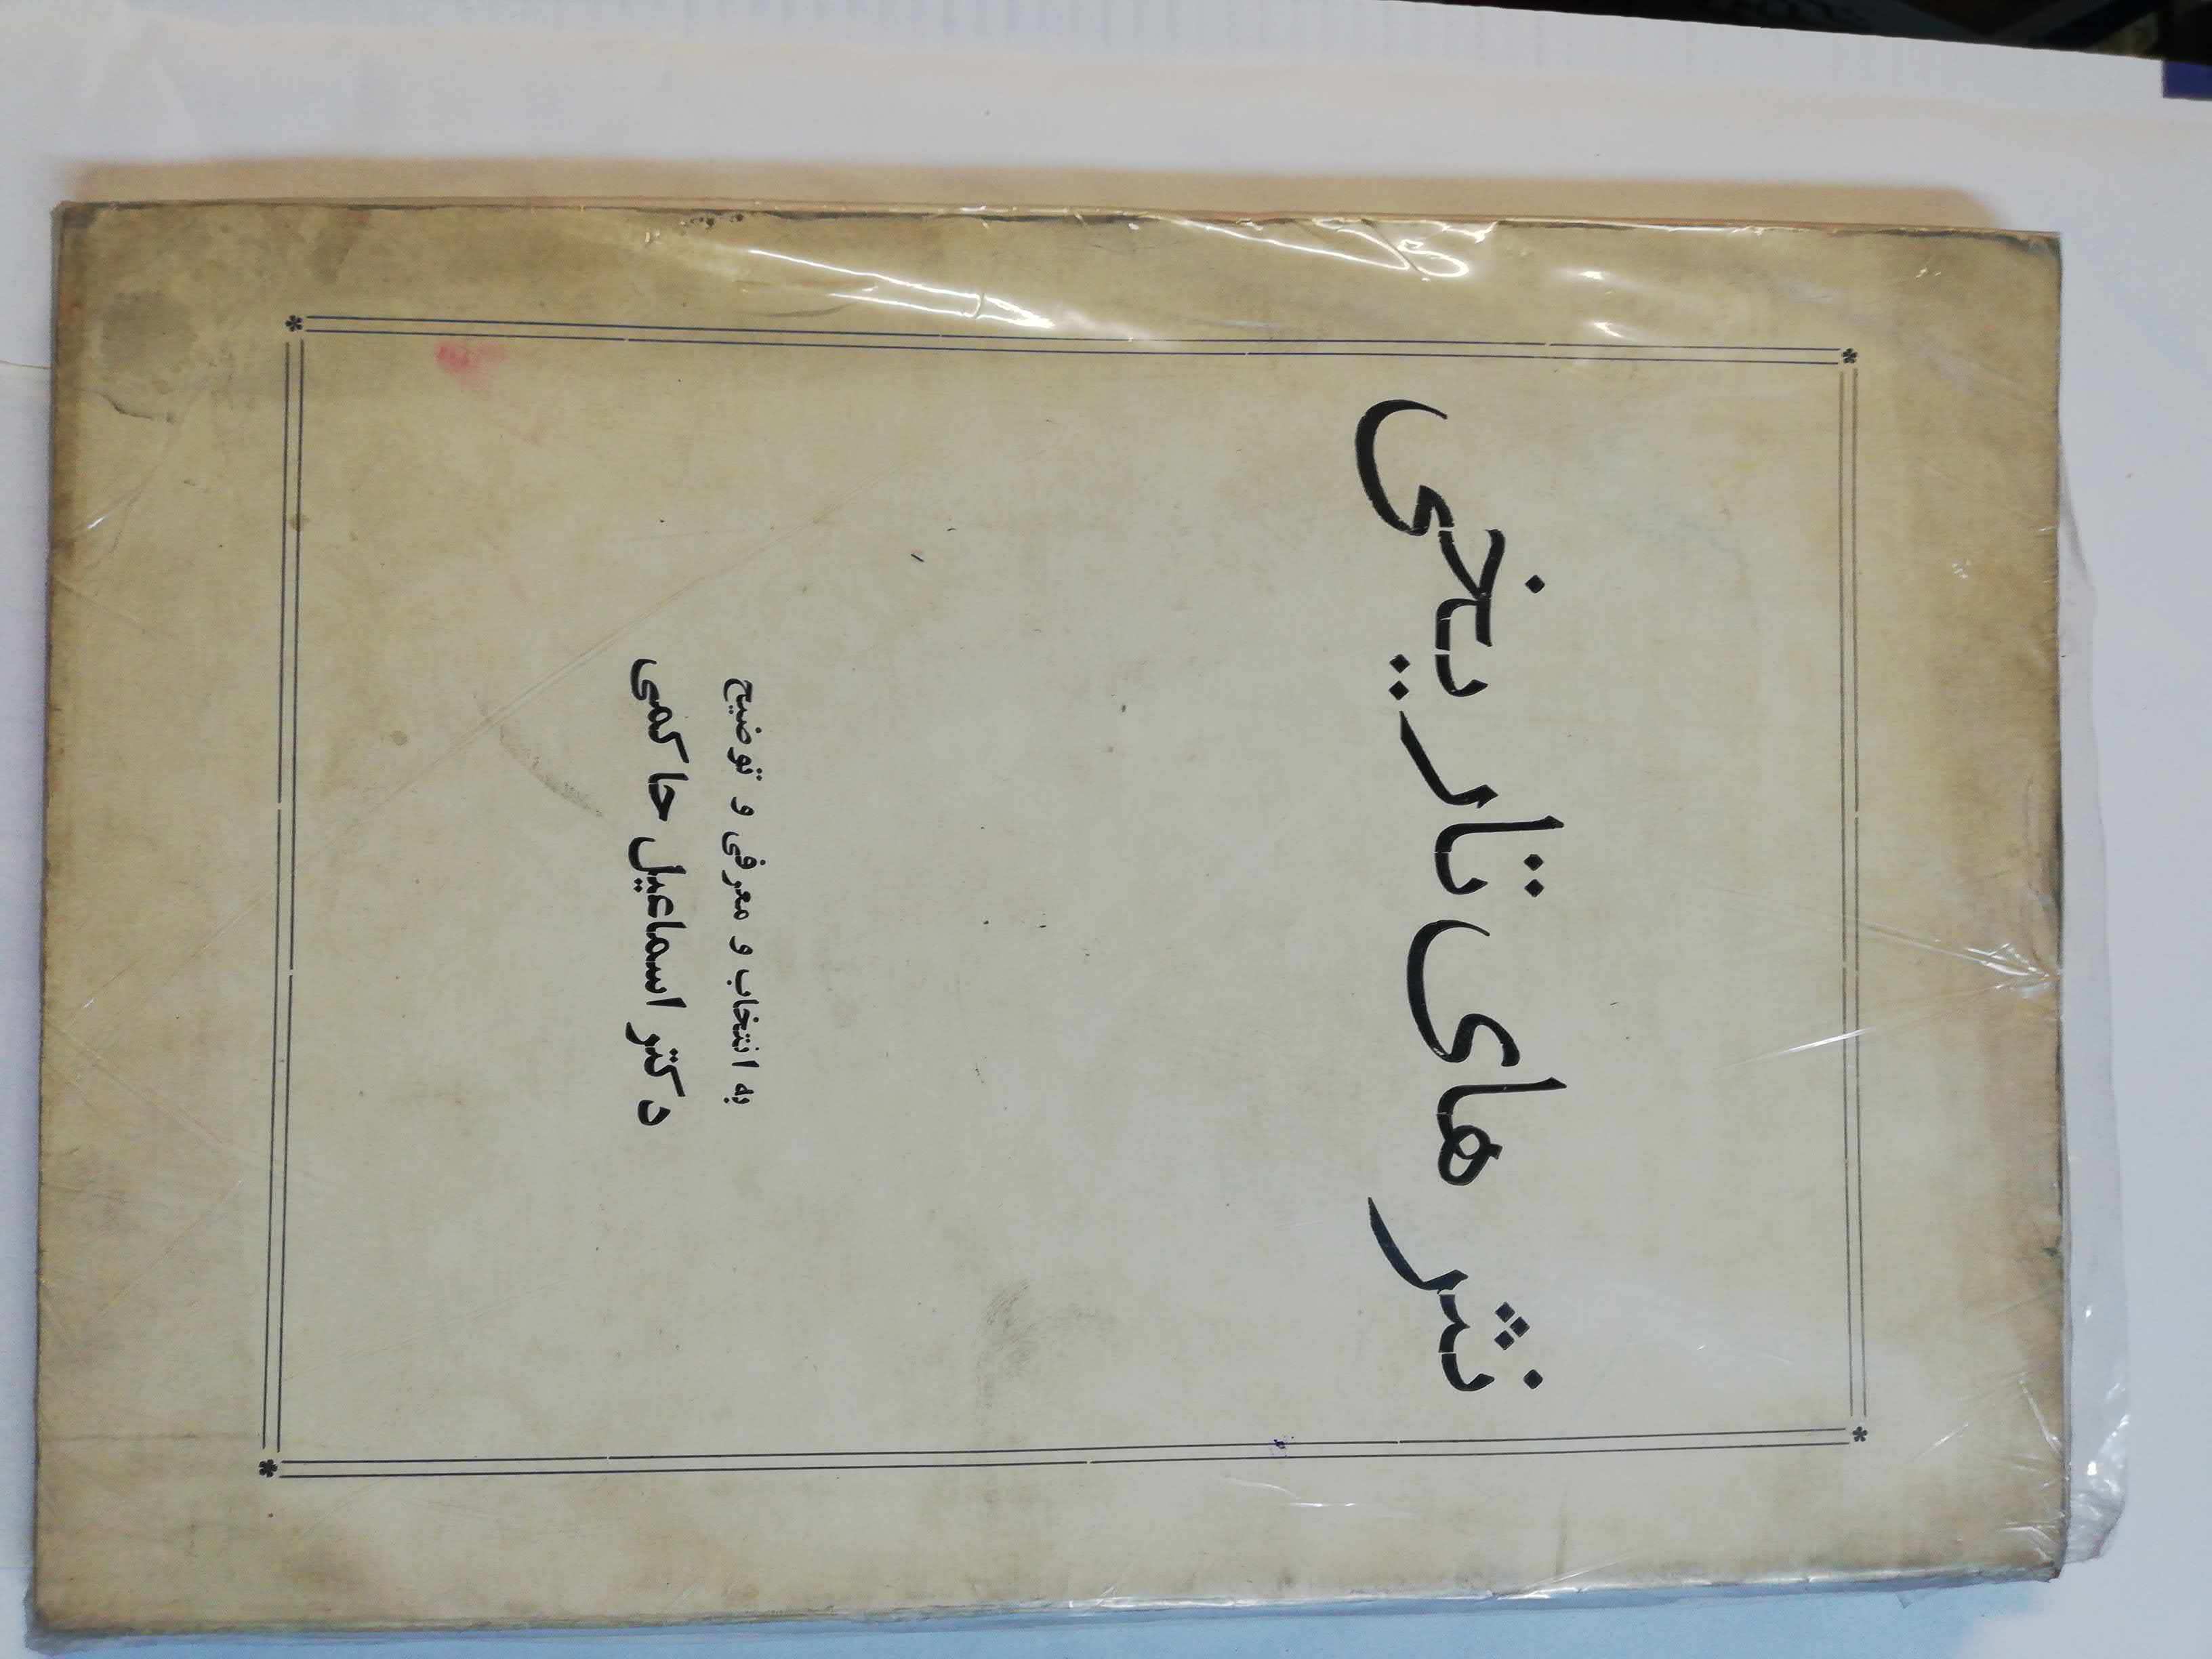 نثر های تاریخی
به انتخاب و معرفی و توضیح
دکتر اسماعیل حاکمی